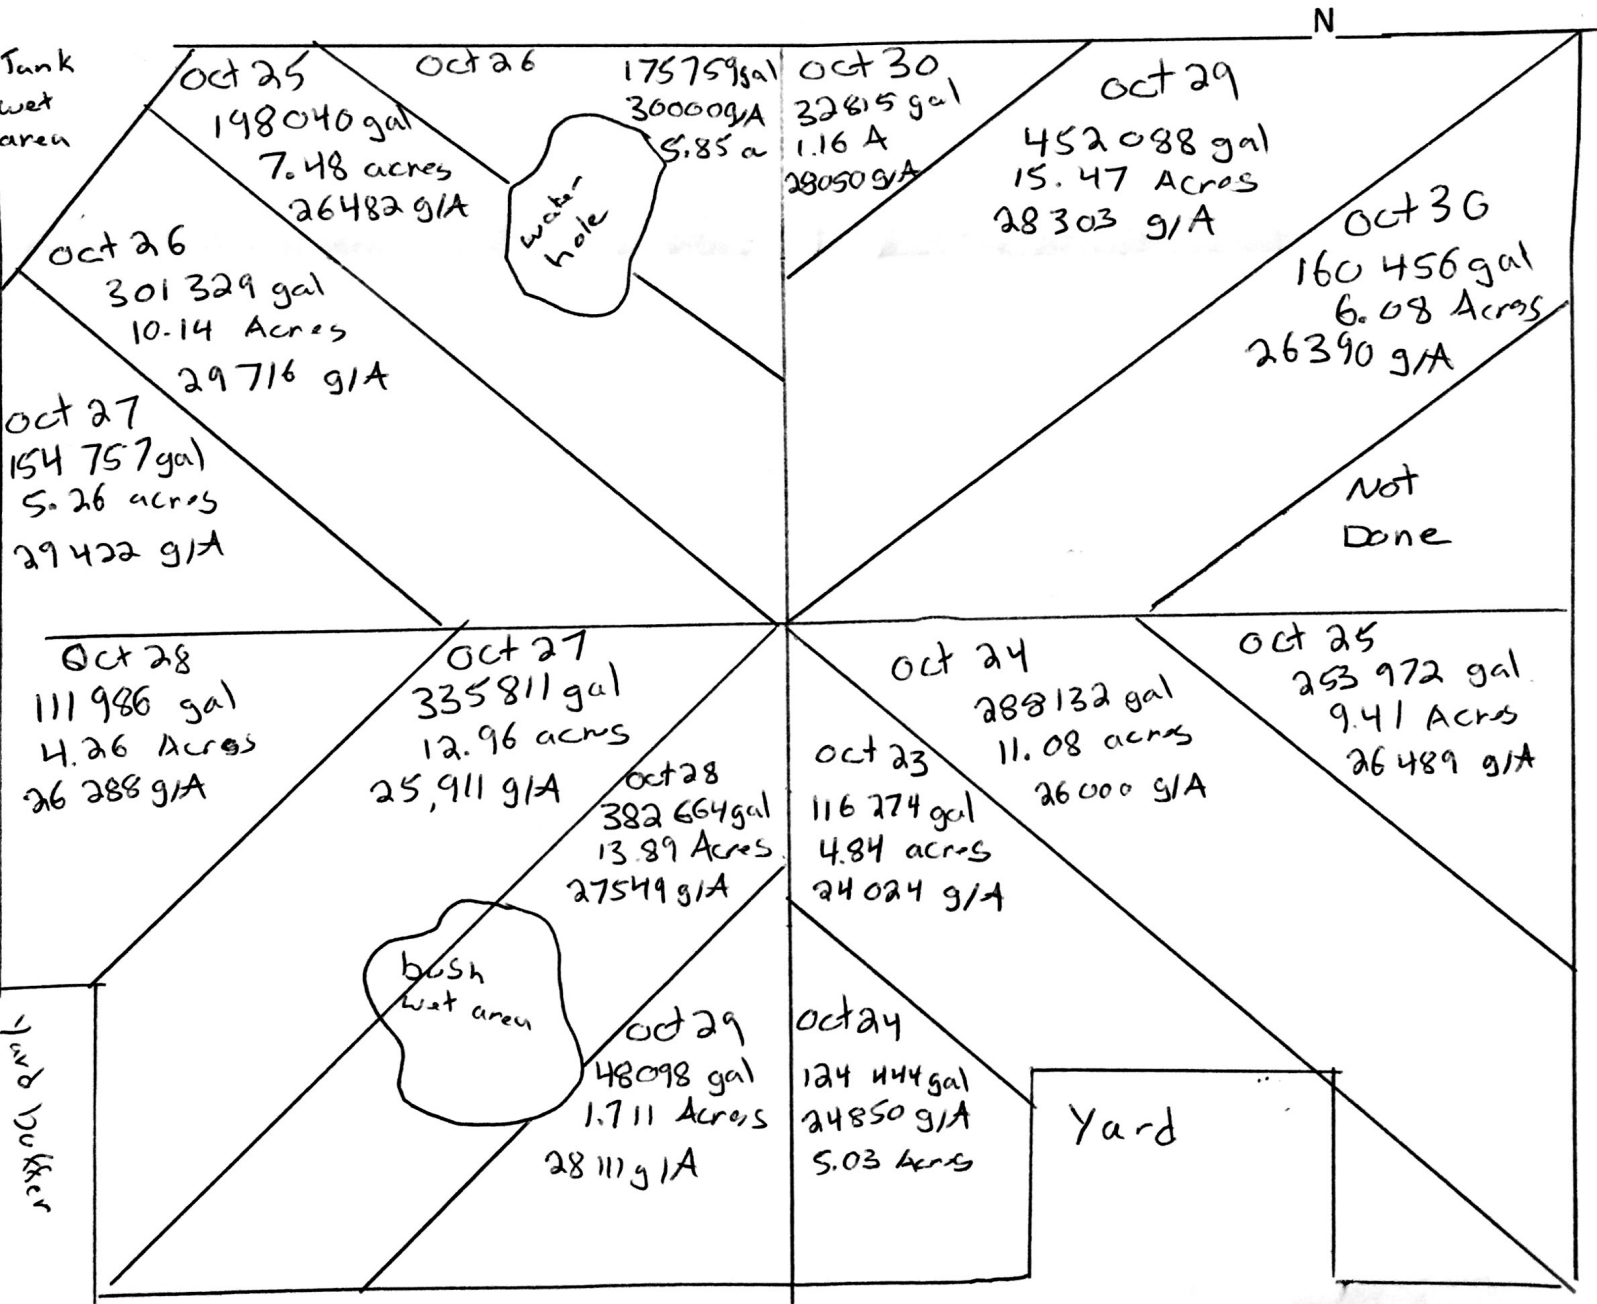 N
Tank
wet
area
Oct 25
198040 gal
7.48 acres
26482 g/A
Oct 26
175759gal
30000g/A
5.85 a
water
hole
Oct 30
32815 gal
1.16 A
28050 g/A
Oct 29
452088 gal
15.47 Acres
28303 g/A
Oct 30
160 456 gal
6.08 Acres
26390 g/A
Not
Done
Oct 26
301 329 gal
10.14 Acres
29716 g/A
Oct 27
154 757gal
5.26 acres
29422 g/A
Oct 28
111 986 gal
4.26 Acres
26 288 g/A
Oct 27
335811 gal
12.96 acres
25,911 g/A
Oct 28
382 664gal
13.89 Acres
27549 g/A
bush
wet area
Oct 29
48098 gal
1.711 Acres
28111 g/A
Oct 23
116 274 gal
4.84 acres
24024 g/A
Oct 24
288132 gal
11.08 acres
26000 g/A
Oct 25
253 972 gal
9.41 Acres
26489 g/A
Oct 24
124 444gal
24850 g/A
5.03 Acres
Yard
Yard buffer